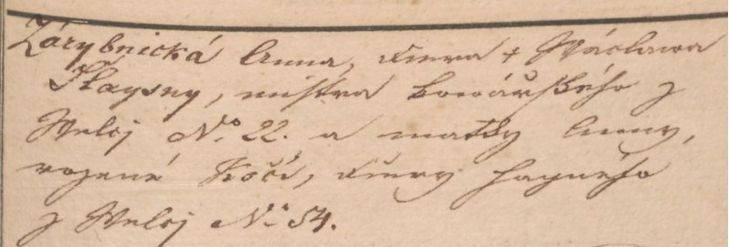 Zárybnická Anna, dcera † Václawa
Štaysny, mistra kowářského z
Welej N.º 22. a matky Anny,
rozené Kočí, dcery hayného
z Welej N.º 54.